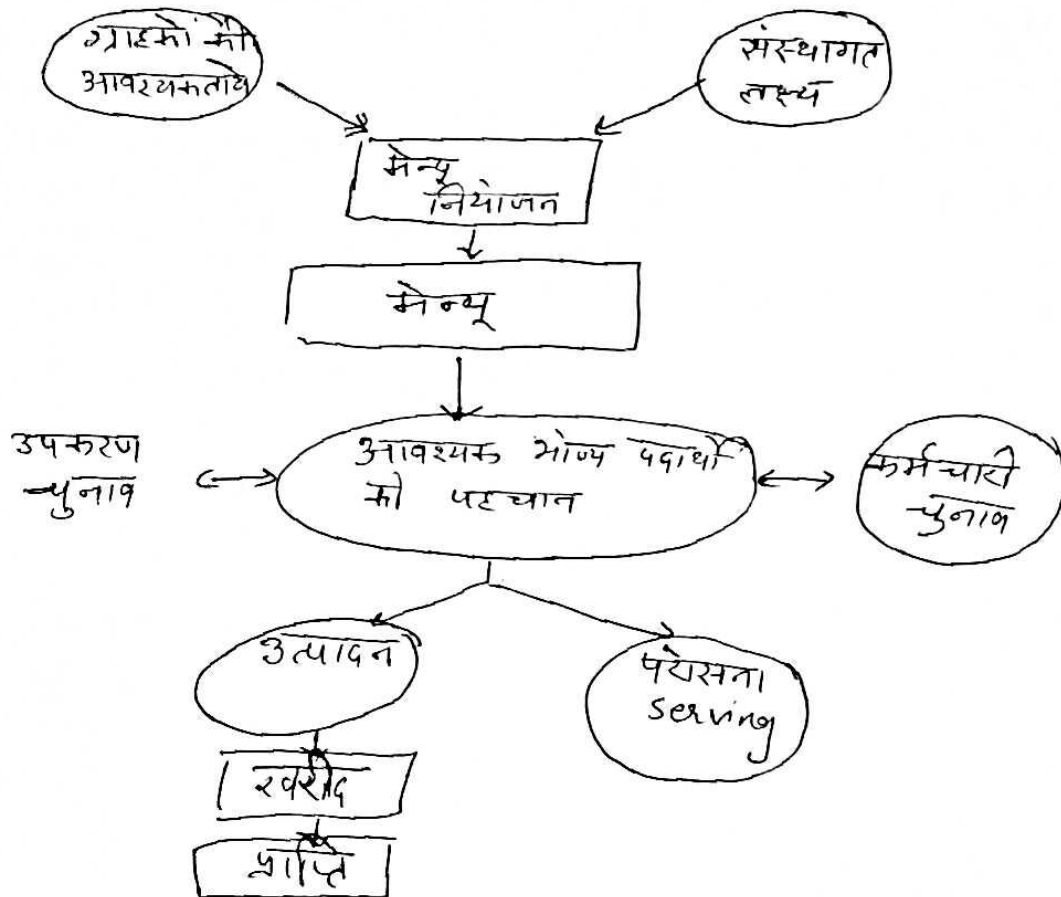 ग्राहकों की
आवश्यकतायें
संस्थागत
लक्ष्य
मेन्यू
नियोजन
मेन्यू
आवश्यक भोज्य पदार्थों
की पहचान
उपकरण
चुनाव
कर्मचारी
चुनाव
उत्पादन
परोसना
serving
खरीद
प्राप्ति